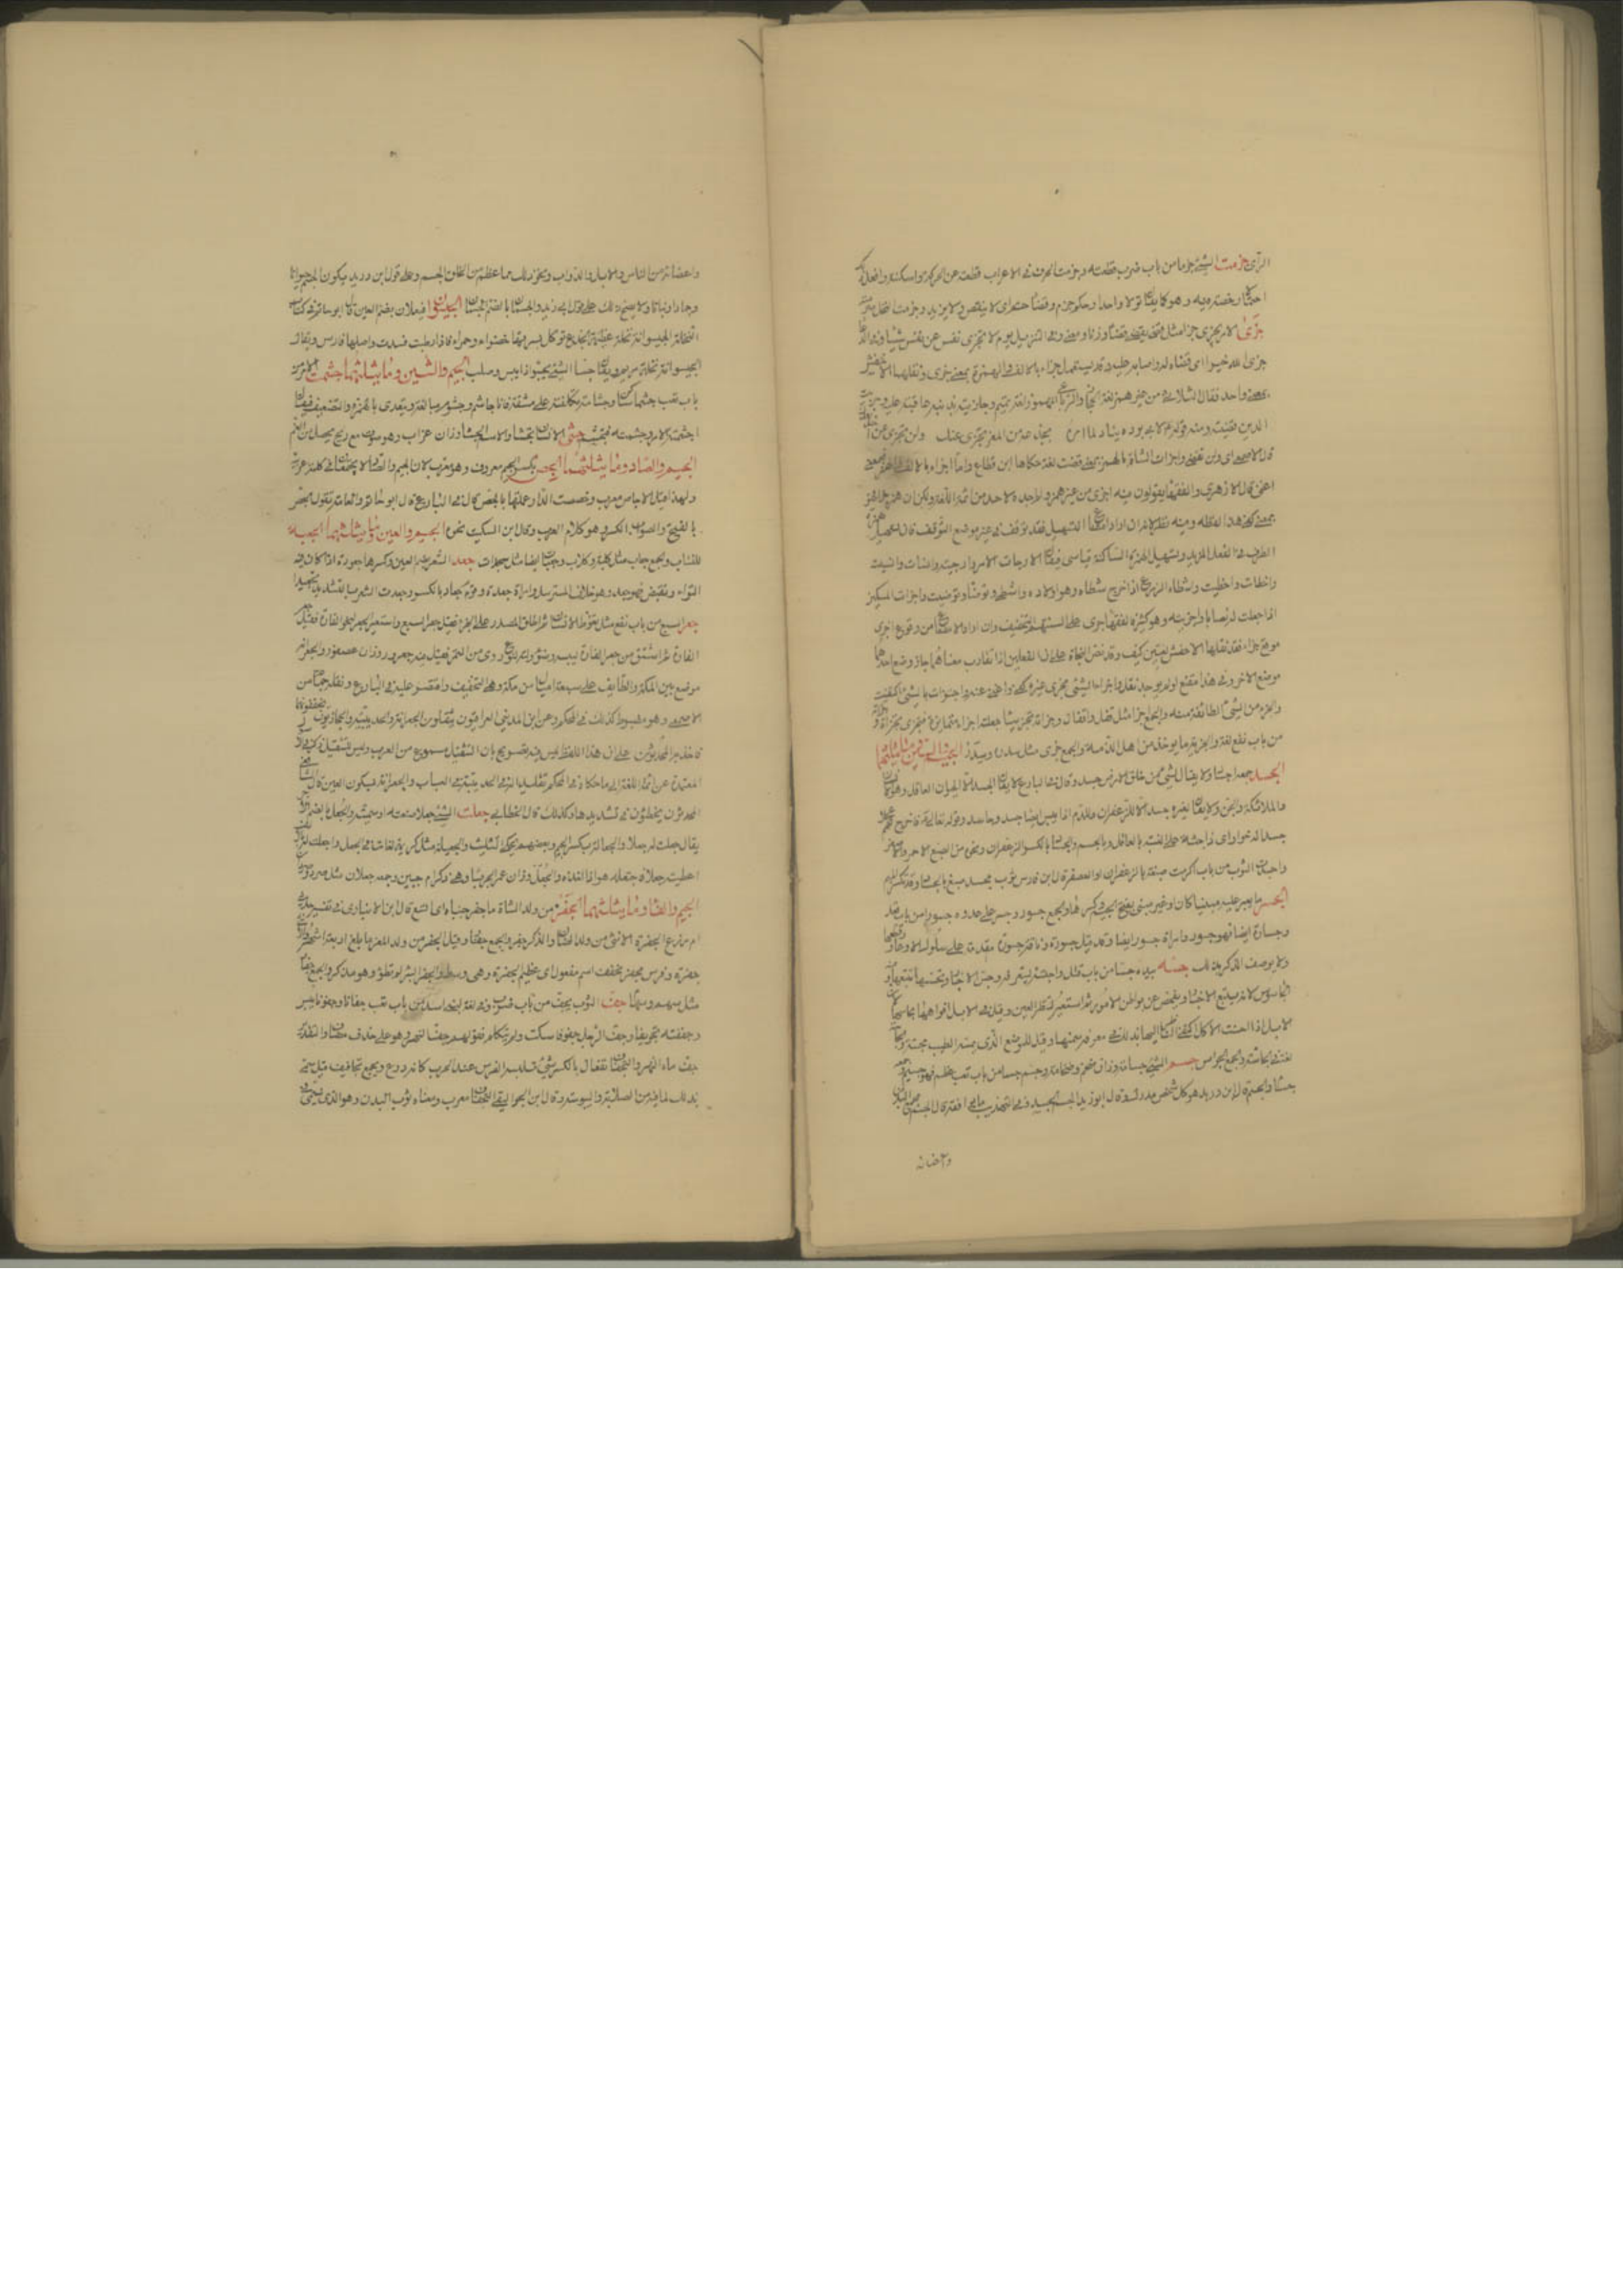 جزمت الشئ جزما من باب ضرب قطعته وجزمت الحرف فى الاعراب قطعته عن الحركة واسكنته
وهو كما يقال قولا واحدا وحكم جزم وقضا حتم اى لا ينقض ولا يرد وجزمت النخل
جزى الامر يجزى جزاء مثل قضى يقضى قضاء وزنا ومعنى وفى التنزيل يوم لا تجزى نفس عن نفس شيئا
جزى الله خيرا اى قضاه له واثابه عليه وقد يستعمل اجزاء بالالف والهمزة بمعنى جزى ونقلهما الاخفش
بمعنى واحد فقال الثلاثى من غير همز لغة الحجاز والرباعى المهموز لغة تميم وجازيته بذنبه
الدين قضيته ومنه قوله لابى بردة بن نيار لما امره ولن تجزى عن احد
قال الاصمعى اى ولن تقضى واجزات الشاة بالهمزة بمعنى قضت لغة حكاها ابن القطاع واما اجزا بالالف والهمز فبمعنى
اغنى قال الازهرى والفقهاء يقولون فيه اجزى من غير همز ولم اجده لاحد من ائمة اللغة ولكن ان همز اجزا فهو
بمعنى كفى هذا لفظه وفيه نظر لانه ان اراد امتناع التسهيل فقد توقف فى غير موضع التوقف فان تسهيل همزة
الطرف فى الفعل المزيد وتسهيل الهمزة الساكنة قياسى فيقال ارجات الامر وارجيته وانسات وانسيت
واخطات واخطيت واشطا الزرع اذا اخرج شطاه وهو اولاده واشطى وتوضات وتوضيت واجزات السكين
اذا جعلت له نصابا واجزيته وهو كثير فالفقهاء جرى على السنتهم التخفيف وان اراد الامتناع من وقوع اجزى
موقع جزى فقد نقلهما الاخفش لغتين كيف وقد نص النحاة على ان الفعلين اذا تقارب معناهما جاز وضع احدهما
موضع الاخر وفى هذا مقنع لو لم يوجد نقل واجزا الشئ مجزى غيره كفى واغنى عنه واجتزات بالشئ اكتفيت
والجزء من الشئ الطائفة منه والجمع اجزاء مثل قفل واقفال وجزاته تجزيئا جعلته اجزاء متمايزة فتجزى تجزاة
من باب نفع لغة والجزية ما يوخذ من اهل الذمة والجمع جزى مثل سدرة وسدر الجيم والسين وما يثلثهما
الجسد جمعه اجساد ولا يقال لشئ من خلق الارض جسد وقال فى البارع لا يقال الجسد الا للحيوان العاقل وهو الانسان
والملائكة والجن ولا يقال لغيره جسد الا للزعفران وللدم اذا يبس ايضا جسد وجاسد وقوله تعالى فاخرج لهم عجلا
جسدا له خوار اى ذا جثة على التشبيه بالعاقل وبالجسم والجساد بالكسر الزعفران ونحوه من الصبغ الاحمر والاصفر
واجسدت الثوب من باب اكرمت صبغته بالزعفران او العصفر قال ابن فارس ثوب مجسد صبغ بالجساد وقد تكسر الميم
الجسر ما يعبر عليه مبنيا كان او غير مبنى بفتح الجيم وكسرها والجمع جسور وجسر على عدوه جسورا من باب قعد
وجسارة ايضا فهو جسور وامراة جسور ايضا وقد قيل جسورة وناقة جسورة مقدمة على سلوك الاوعار وقطعها
ولا يوصف الذكر بذلك جسه بيده جسا من باب قتل واجتسه ليتعرفه وجس الاخبار وتجسسها تتبعها ومنه
الجاسوس لانه يتتبع الاخبار ويفحص عن بواطن الامور ثم استعير لنظر العين وقيل فى الابل افواهها مجاسها لان
الابل اذا احسنت الاكل اكتفى الناظر اليها بذلك فى معرفة سمنها وقيل للموضع الذى يمسه الطبيب مجسة
لغة فى الحاسة والجمع الجواس جسم الشئ جسامة وزان ضخم ضخامة وجسم جسما من باب تعب عظم فهو جسيم
جسام والجسم قال ابن دريد هو كل شخص مدرك وقال ابو زيد الجسم الجسد وفى التهذيب ما يوافقه قال الجسم مجمع البدن
واعضائه
واعضائه من الناس والابل والدواب ونحو ذلك مما عظم من الخلق الجسم وعلى قول ابن دريد يكون الجسم حيوانا
وجمادا ونباتا ولا يصح ذلك على قول ابى زيد والجسمان بالضم الجثمان الجيسوان فيعلان بضم العين قال ابو حاتم فى كتاب
النخلة الجيسوانة نخلة عظيمة الجذع توكل بسرتها خضراء وحمراء فاذا ارطبت فسدت واصلها فارس ويقال
الجيسوانة نخلة مريم ويقال جسا الشئ يجسو اذا يبس وصلب الجيم والشين وما يثلثهما جشمت الامر من
باب تعب جشما وجشامة تكلفته على مشقة فانا جاشم وجشوم مبالغة ويتعدى بالهمزة والتضعيف فيقال
اجشمته الامر وجشمته فتجشم جشى الانسان تجشا والاسم الجشاء وزان غراب وهو صوت مع ريح يحصل من الفم
الجيم والصاد وما يثلثهما الجص بكسر الجيم معروف وهو معرب لان الجيم والصاد لا يجتمعان فى كلمة عربية
ولهذا قيل الاجاص معرب وجصصت الدار عملتها بالجص قال فى البارع قال ابو حاتم والعامة تقول الجص
بالفتح والصواب الكسر وهو كلام العرب وقال ابن السكيت نحوه الجيم والعين وما يثلثهما الجعبة
للنشاب والجمع جعاب مثل كلبة وكلاب وجعبات ايضا مثل سجدات جعد الشعر بضم العين وكسرها جعودة اذا كان فيه
التواء وتقبض فهو جعد وهو خلاف المسترسل وامراة جعدة وقوم جعاد بالكسر وجعدت الشعر بالتشديد تجعيدا
جعر السبع من باب نفع مثل تغوط الانسان ثم اطلق المصدر على الخرء فقيل جعر السبع واستعير الجعر لنجو الفارة فقيل جعر
الفارة ثم اشتق من جعر الفارة ليبسه وضؤولته لنوع ردى من التمر فقيل فيه جعرور وزان عصفور والجعرانة
موضع بين مكة والطائف على سبعة اميال من مكة وهى بالتخفيف واقتصر عليه فى البارع ونقله جماعة عن
الاصمعى وهو مضبوط كذلك فى المحكم وعن ابن المدينى العراقيون يثقلون الجعرانة والحديبية والحجازيون يخففونهما
فاخذ به المحدثون على ان هذا اللفظ ليس فيه تصريح بان التثقيل مسموع من العرب وليس للتثقيل ذكر فى الاصول
المعتمدة عن ائمة اللغة الا ما حكاه فى المحكم تقليدا له فى الحديبية وفى العباب والجعرانة بسكون العين قال الشافعى
المحدثون يخطؤن فى تشديدها وكذلك قال الخطابى جعلت الشئ جعلا صنعته او سميته والجعل بالضم الاجر
يقال جعلت له جعلا والجعالة بكسر الجيم وبعضهم يحكى التثليث والجعيلة مثل كريمة لغات فى الجعل واجعلت له بالالف
اعطيته جعلا فاجتعله هو اذا اخذه والجعل وزان عمر الحرباء وهى ذكر ام حبين وجمعه جعلان مثل صرد وصردان
الجيم والفاء وما يثلثهما الجفر من ولد الشاة ما جفر جنباه اى اتسع قال ابن الانبارى فى تفسير حديث
ام زرع الجفرة الانثى من ولد الضان والذكر جفر والجمع جفار وقيل الجفر من ولد المعز ما بلغ اربعة اشهر والانثى
جفرة وفرس مجفر بتخفيف اسم مفعول اى عظيم الجفرة وهى وسطه والجفر البئر لم تطو وهو مذكر والجمع جفار
مثل سهم وسهام جف الثوب يجف من باب ضرب وفى لغة لبنى اسد من باب تعب جفافا وجفوفا يبس
وجففته تجفيفا وجف الرجل جفوفا سكت ولم يتكلم فقولهم جف النهر وهو على حذف مضاف والتقدير
جف ماء النهر والتجفاف تفعال بالكسر شئ تلبسه الفرس عند الحرب كانه درع والجمع تجافيف قيل سمى
بذلك لما فيه من الصلابة واليبوسة وقال ابن الجواليقى التجفاف معرب ومعناه ثوب البدن وهو الذى يسمى